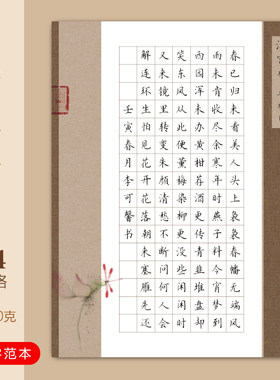 春已归来看美人头上袅袅春幡无端风
雨未肯收尽余寒年时燕子料今宵梦到
西园浑未办黄柑荐酒更传青韭堆盘却
笑东风从此便熏梅染柳更没些闲闲时
又来镜里转变朱颜清愁不断问何人会
解连环生怕见花开花落朝来塞雁先还
壬寅春月李可馨书
4
0克
字范本